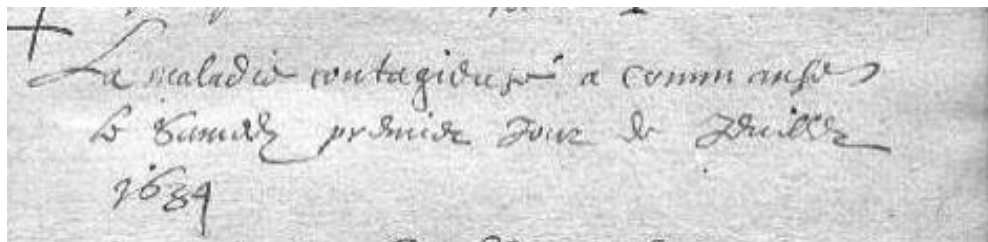 La maladie contagieuse a commansé
le Samedy premier Jour de Jeuillet
1634